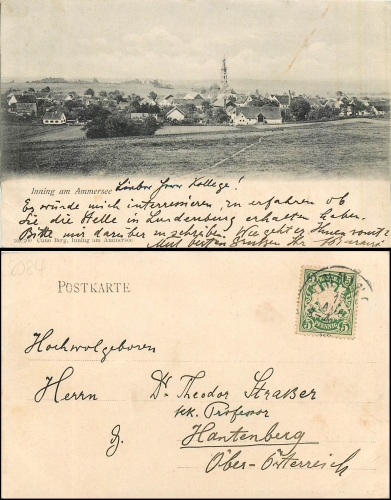 Inning am Ammersee
Lieber Herr Kollege!
Es würde mich interressieren, zu erfahren ob
Sie die Stelle in Lundenburg erhalten haben.
Bitte mir darüber zu schreiben. Wie geht es Ihnen sonst?
Cuno Berg, Inning am Ammersee
Mit besten Grüßen Ihr
6984
POSTKARTE
5 5
PFENNIG
Hochwolgeboren
Herrn Dr Theodor Straßer
kk. Professor
Hantenberg
Ober-Österreich